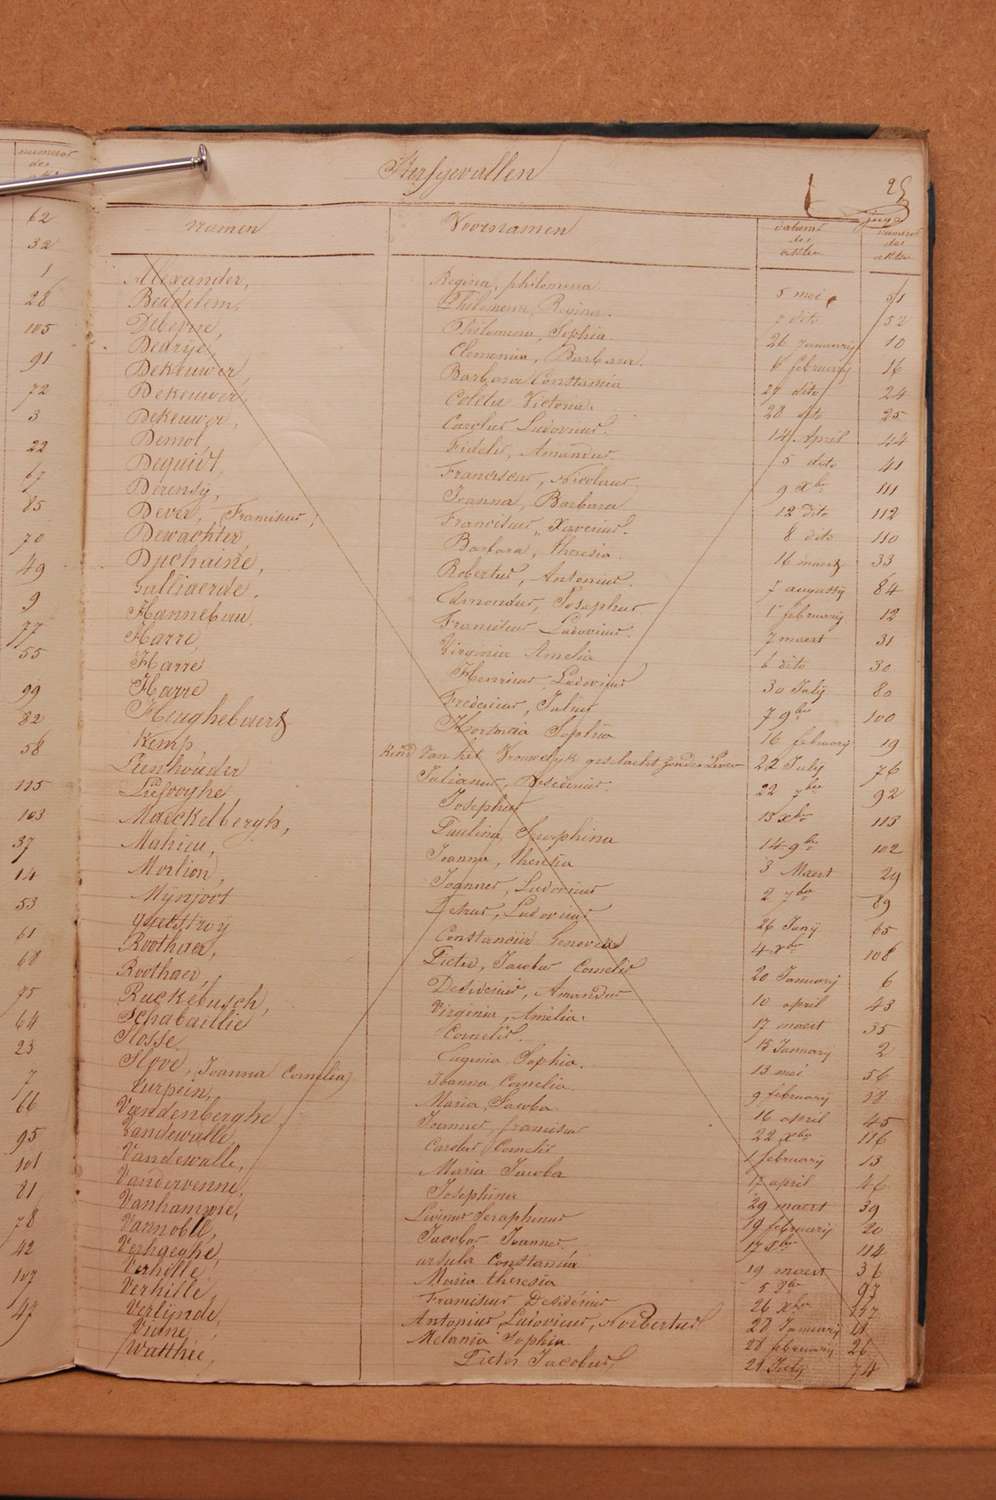 numero
der
62
32
1
28
105
91
72
3
22
67
85
70
49
9
77
55
99
82
58
115
103
37
14
53
61
68
75
64
23
7
66
95
101
21
78
42
107
47
Sterfgevallen
25
Namen Voornamen datums der akten numero der akten
Alexander, Regina, philomena 5 mei 51
Beddelem, Philomena, Regina. 7 dito 52
Debevre, Philomena, Sophia 26 January 10
Dedrye, Clemenia, Barbara. 8 february 16
Dekeuwer, Barbara Constancia 27 dito 24
Dekeuwer, Coleta Victoria. 28 dito 25
Dekeuwer, Carolus Ludovicus. 14 April 44
Demol Fidelis, Amandus 5 dito 41
Deguidt, Franciscus, Nicolaus 9 xber 111
Derensy, Joanna, Barbara 12 dito 112
Dever, Franciscus, Franciscus, Xaverius. 8 dito 110
Dewachter Barbara, theresia 16 maert 33
Duchaine, Robertus, Antonius. 7 augusty 84
Galliaerde, Edmondus, Josephus 1 february 12
Hannebouw. Franciscus Ludovicus. 7 maert 31
Harre, Virginia Amelia 6 dito 30
Harre Henricus Ludovicus 30 July 80
Harre Fredericus, Julius 7 9ber 100
Heughebaert Hortensia Sophia 16 february 19
Kemp, Kind van het Vrouwelyk geslacht zonder Leven 22 July 76
Leenhouder Julianus, Desiderius. 22 7ber 92
Liefooghe Josephus 15 xber 113
Maeckelbergh, Paulina, Seraphina 14 9ber 102
Mahieu, Joanna, theresia 3 Maert 29
Morlion, Joannes, Ludovicus 2 7ber 89
Mynjoot Petrus, Ludovicus 26 Juny 65
Constancia Genoveva 4 xber 108
Roothaer, Pieter, Jacobus Cornelis 20 January 6
Roothaer, Desiderius, Amandus 10 april 43
Ruckebusch, Virginia, Amelia. 17 maert 35
Schabaillie Cornelis. 15 January 2
Slosse Eugenia Sophia. 13 mei 56
Slove, Joanna Cornelia, Joanna, Cornelia 9 february 18
Turpein, Maria, Jacoba 16 april 45
Vandenberghe Joannes, francisca 22 xber 116
Vandewalle, Carolus Cornelis 1 february 13
Vandewalle, Maria Jacoba 17 april 46
Vandervenne, Josephina 29 maert 39
Vanhamme, Livinus Seraphinus 19 february 20
Vannoble, Jacobus Joannes. 17 xber 114
Verhaeghe, ursula Constancia 19 maert 36
Verhille, Maria theresia 5 8ber 97
Verhille, Franciscus Desiderius 26 xber 117
Verlynde, Antonius, Ludovicus, Norbertus 28 January 11
Melania Sophia 28 february 26
Watthie, Pieter Jacobus 29 July 74